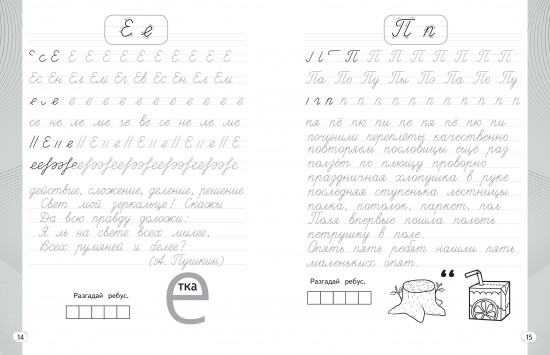 Е е
Е Е Е Е Е Е Е Е Е Е
Ес Ен Ел Ем Ег Ев Ес Ен Ел Ем
е е е е е е е е е е
се не ле ме ге ве се не ле ме
действие, сложение, деление, решение
Свет мой зеркальце! Скажи
Да всю правду доложи:
Я ль на свете всех милее,
Всех румяней и белее?
(А. Пушкин)
Разгадай ребус.
е
тка
14
П п
П П П П П П П П П
Па По Пу Пы По Па По Пу
п п п п п п п п п п п п
пя пё пю пи пе пя пё пю пи
починили переплёты качественно
повторяем пословицы ещё раз
ползёт по плющу проворно
праздничная хлопушка в руке
последняя ступенька лестницы
полка, потолок, паркет, пол
Поля впервые пошла полоть
петрушку в поле.
Опять пять ребят нашли пять
маленьких опят.
Разгадай ребус.
“
15